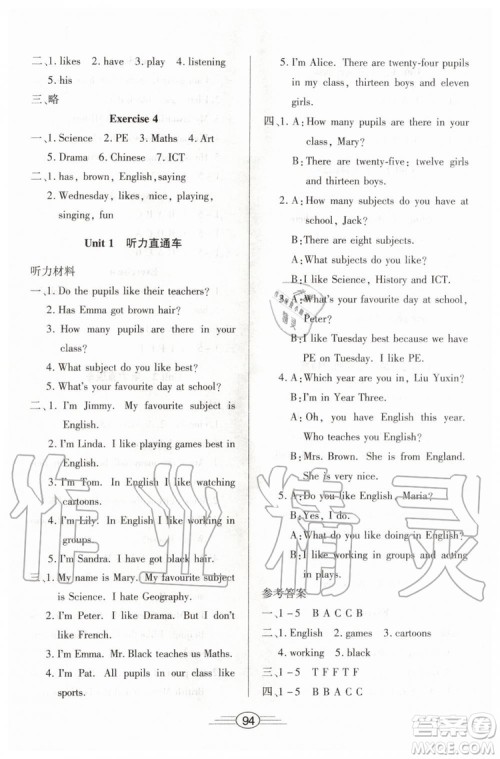 二、1. likes 2. have 3. play 4. listening
5. his
三、略
Exercise 4
一、1. Science 2. PE 3. Maths 4. Art
5. Drama 6. Chinese 7. ICT
二、1. has, brown, English, saying
2. Wednesday, likes, nice, playing,
singing, fun
Unit 1 听力直通车
听力材料
一、1. Do the pupils like their teachers?
2. Has Emma got brown hair?
3. Are there forty pupils in your
class?
4. What subject do you like best?
5. What's your favourite day at school?
二、1. I'm Jimmy. My favourite subject is
English.
2. I'm Linda. I like playing games best in
English.
3. I'm Tom. In English I like watching
cartoons.
4. I'm Lily. In English I like working in
groups.
5. I'm Sandra. I have got black hair.
三、1. My name is Mary. My favourite subject
is Science. I hate Geography.
2. I'm Peter. I like Drama. But I don't
like French.
3. I'm Emma. Mr. Black teaches us Maths.
4. I'm Pat. All pupils in our class like
sports.
5. I'm Alice. There are twenty-four pupils
in my class, thirteen boys and eleven
girls.
四、1. A: How many pupils are there in your
class, Mary?
B: There are twenty-five: twelve girls
and thirteen boys.
2. A: How many subjects do you have at
school, Jack?
B: There are eight subjects.
A: What subjects do you like?
B: I like Science, History and ICT.
3. A: What's your favourite day at school,
Peter?
B: I like Tuesday best because we have
PE on Tuesday. I like PE.
4. A: Which year are you in, Liu Yuxin?
B: I'm in Year Three.
A: Oh, you have English this year.
Who teaches you English?
B: Mrs. Brown. She is from England.
She is very nice.
5. A: Do you like English, Maria?
B: Yes, I do.
A: What do you like doing in English?
B: I like working in groups and acting
in plays.
参考答案
一、1-5 B A C C B
二、1. English 2. games 3. cartoons
4. working 5. black
三、1-5 T F T T F
四、1-5 B A C C B
94
作业精灵